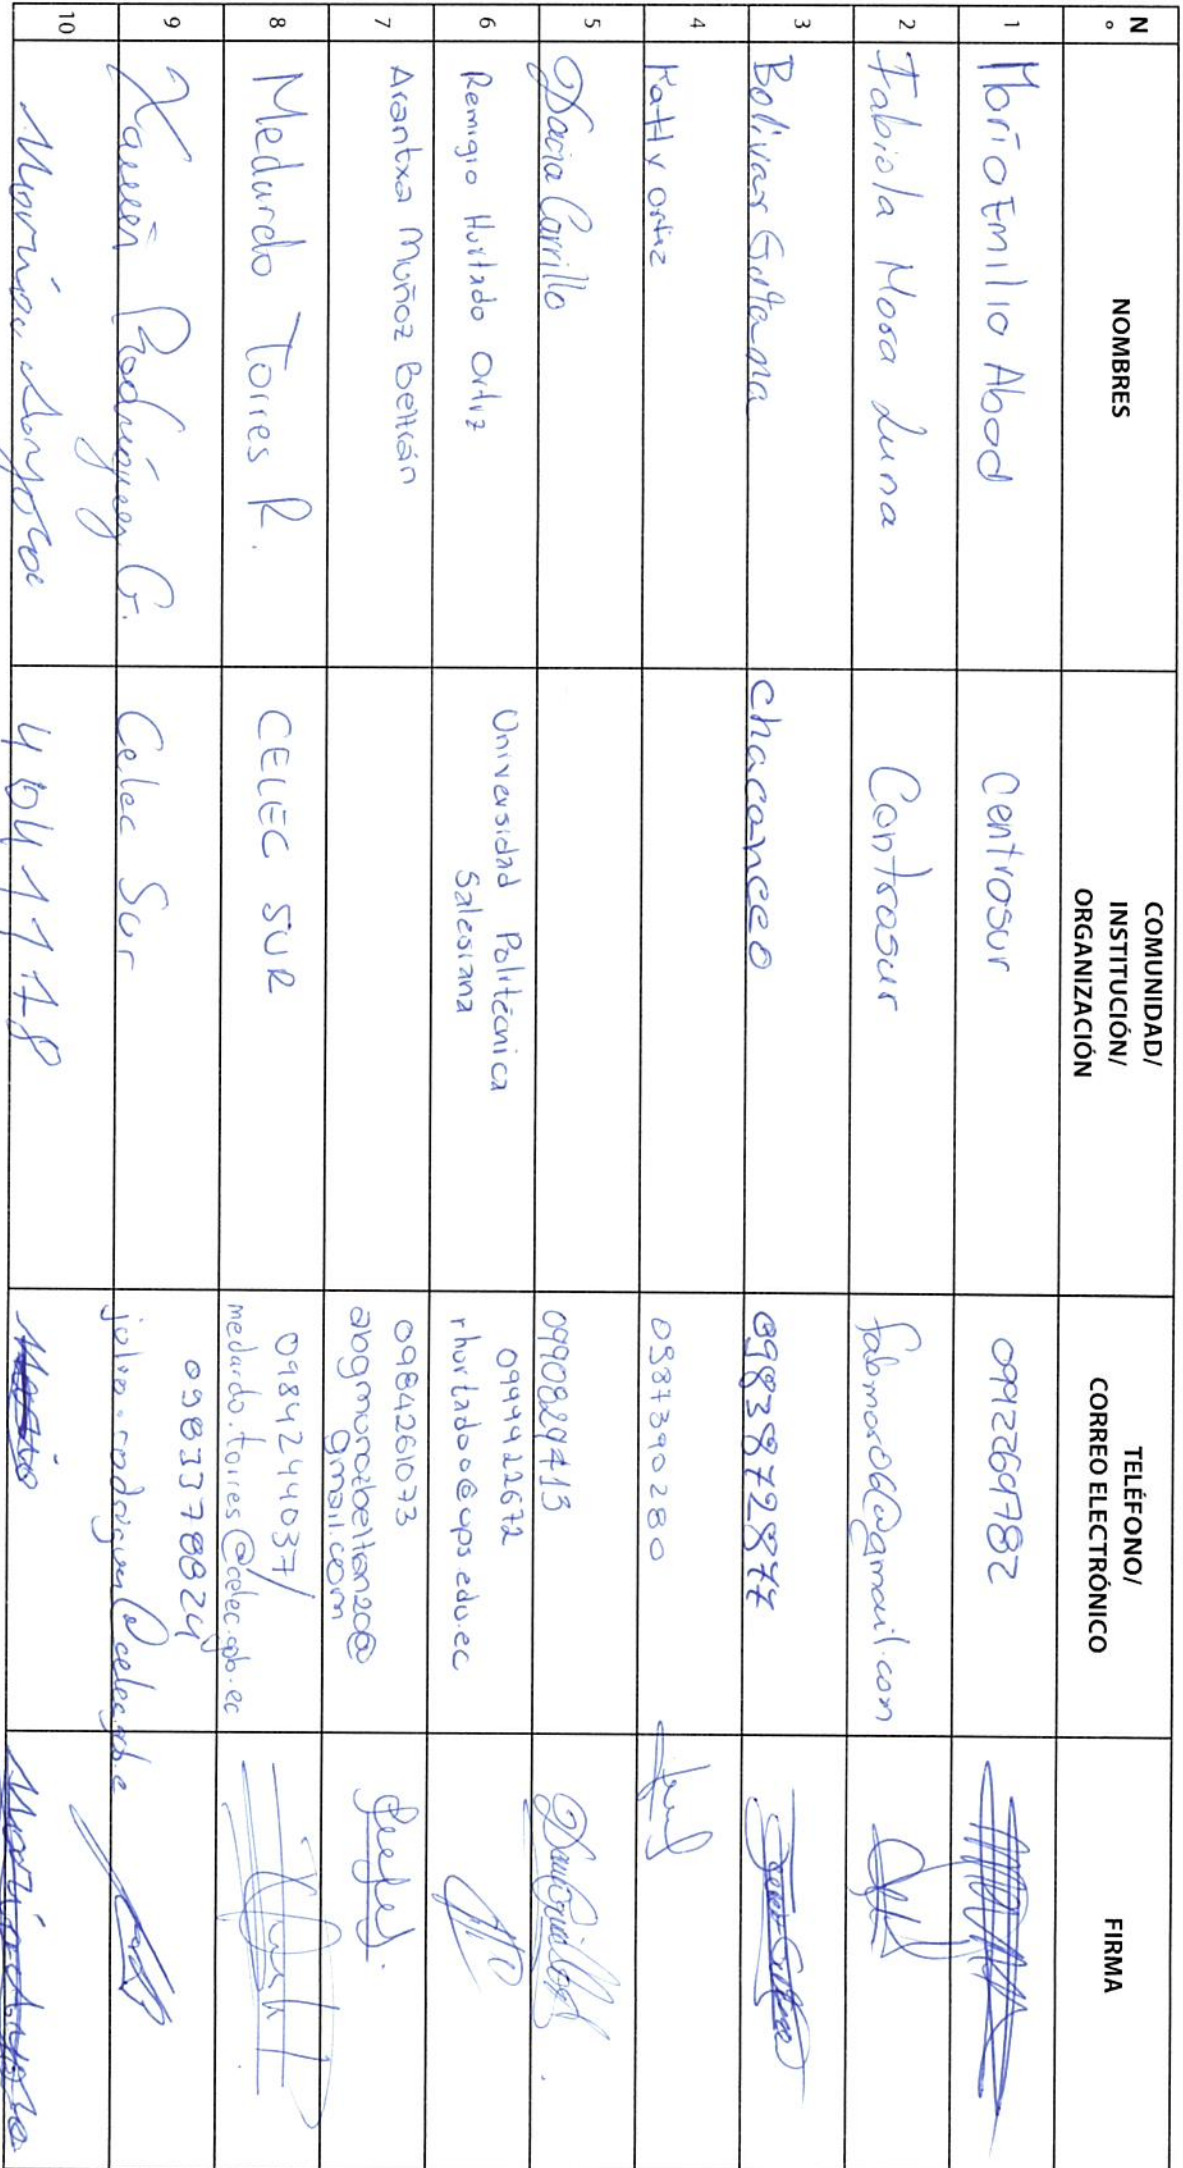 N° NOMBRES COMUNIDAD/ INSTITUCIÓN/ ORGANIZACIÓN TELÉFONO/ CORREO ELECTRÓNICO FIRMA
1 María Emilia Abad Centrosur 0992269782
2 Fabiola Mora Luna Centrosur fabmora06@gmail.com
3 Bolivar Guitama chacanceo 0983872877
4 Kathy Ortiz 0987390280
5 Dacia Carrillo 0990829713
6 Remigio Hurtado Ortiz Universidad Politécnica
Salesiana 0999422672
rhurtadoo@ups.edu.ec
7 Arantxa Muñoz Beltrán 0984261073
abgmunozbeltran20@
gmail.com
8 Medardo Torres R. CELEC SUR 0984244037/
medardo.torres@celec.gob.ec
9 Rodríguez G. Celec Sur 0983378824
10 María 4041178